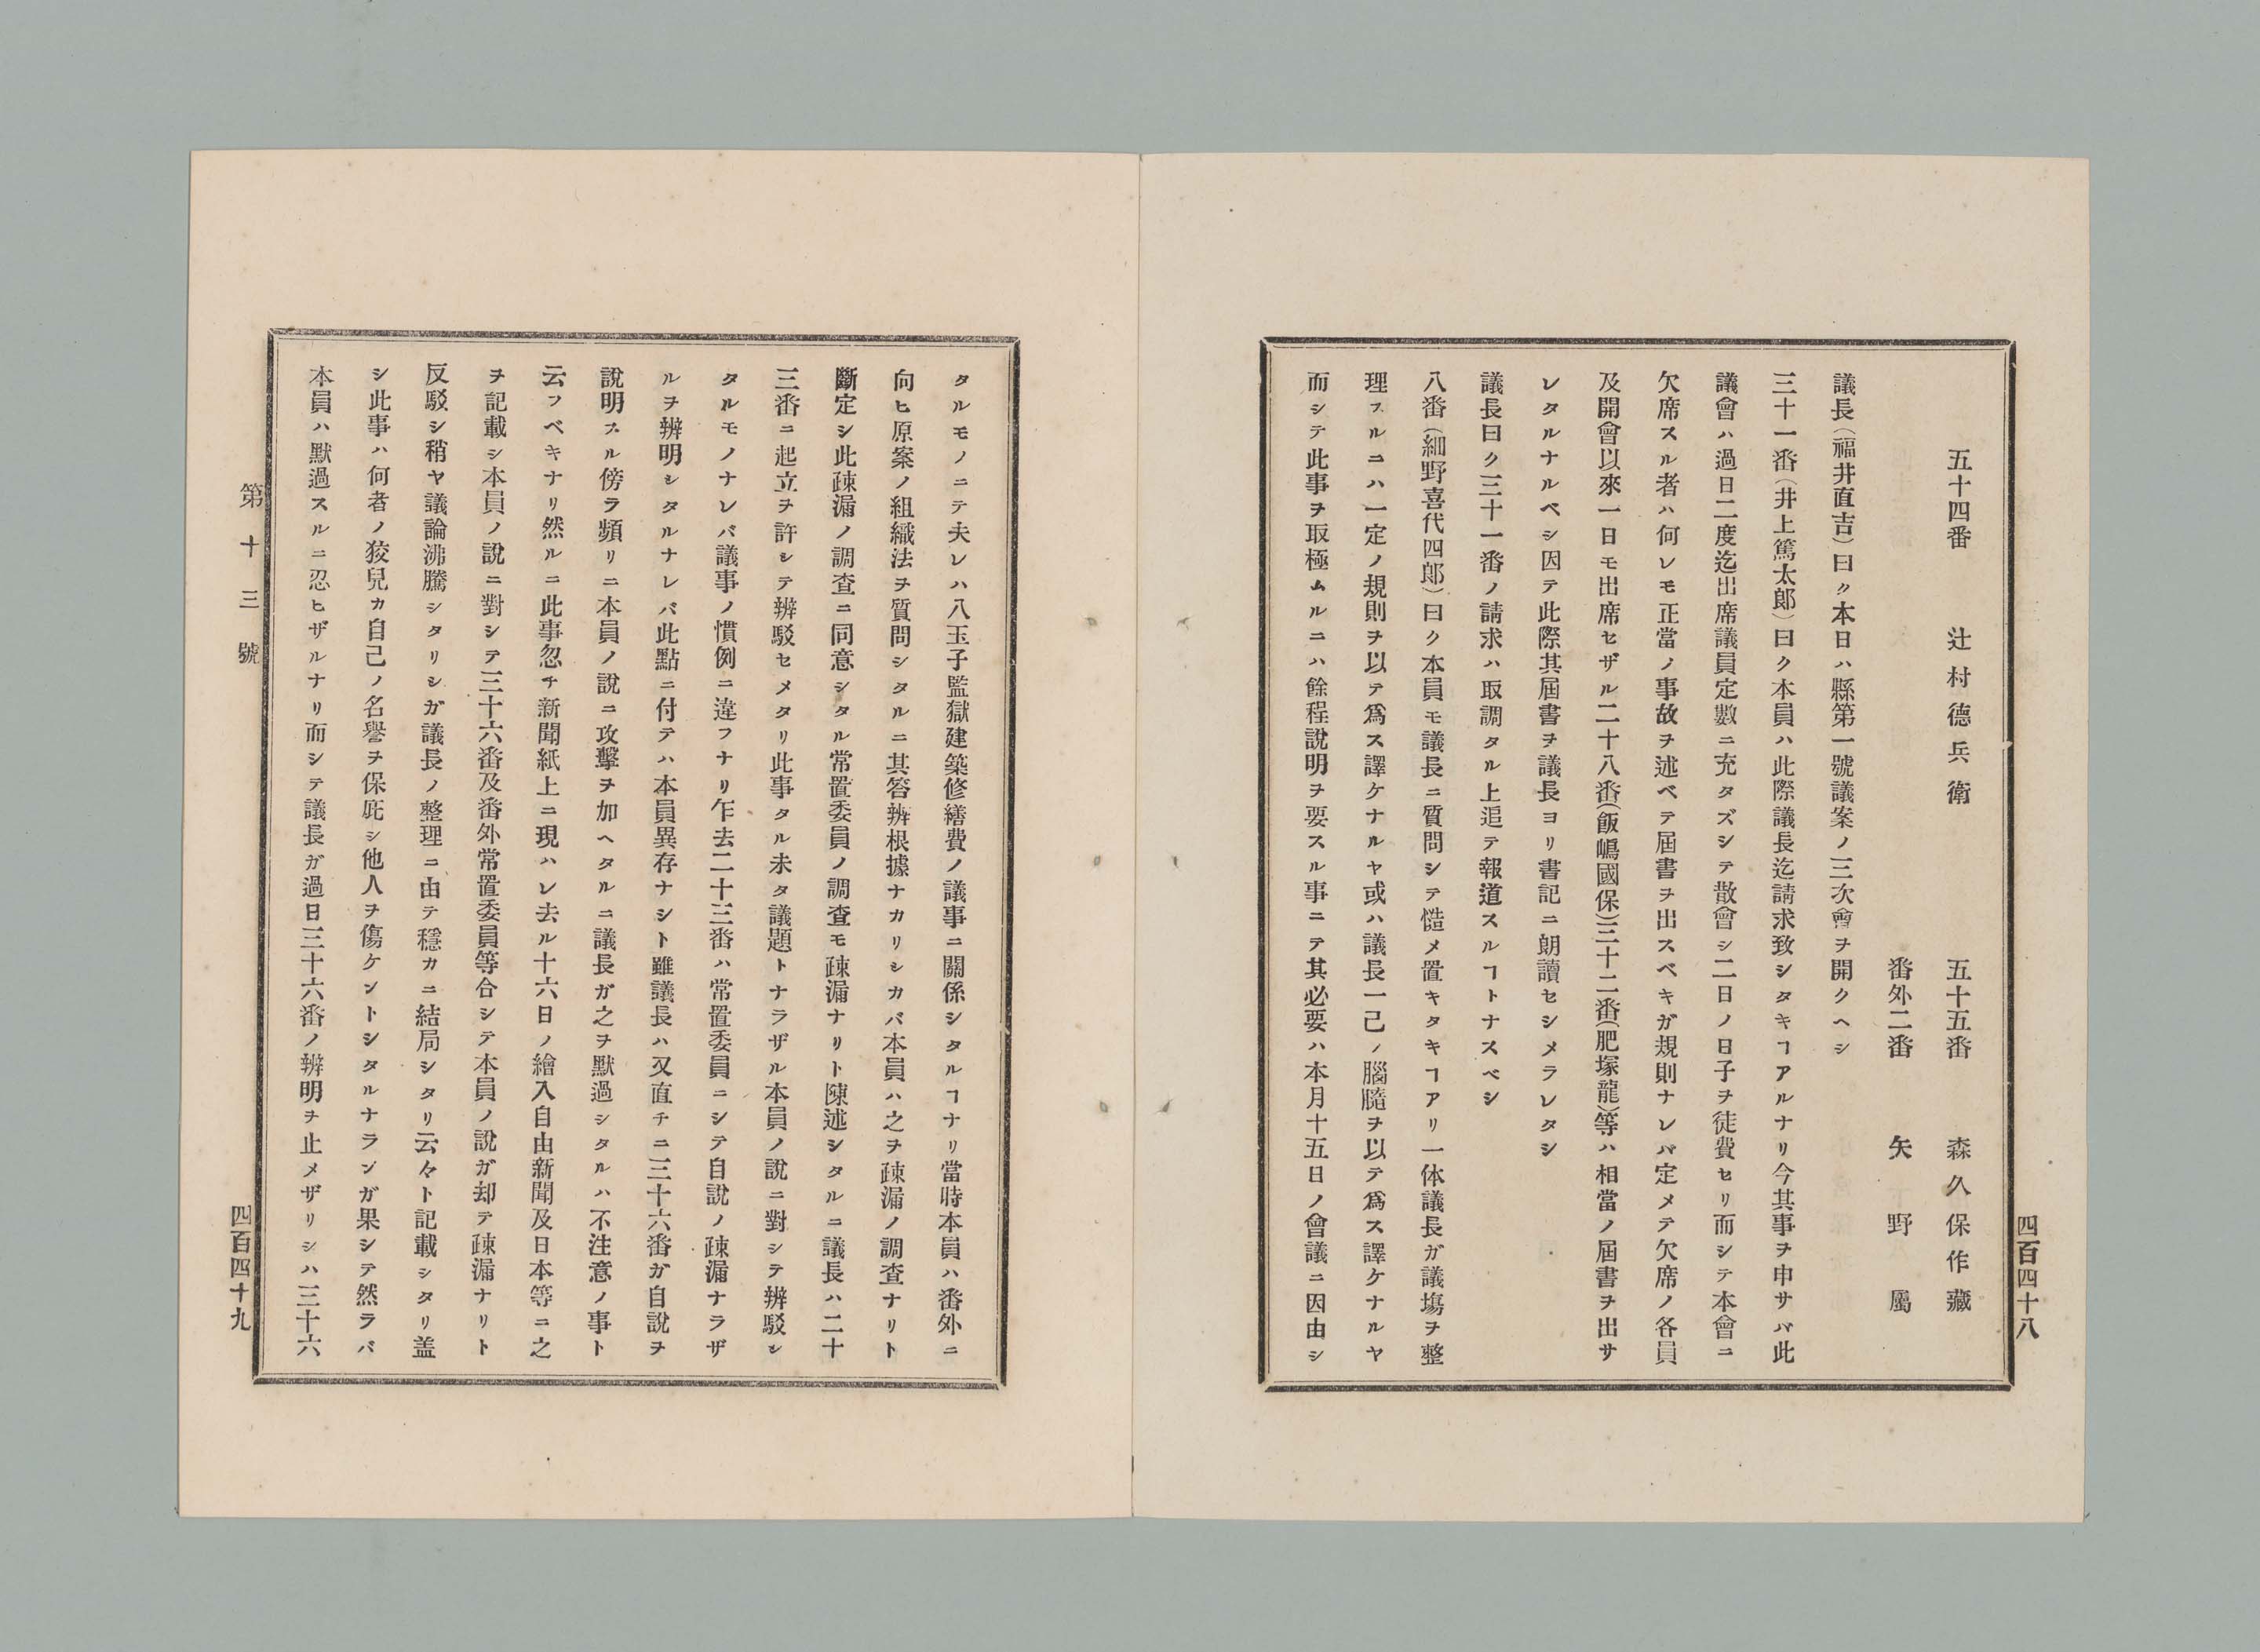 四百四十八
五十四番 辻村德兵衞 五十五番 森久保作藏
番外二番 矢野屬
議長(福井直吉)曰ク本日ハ縣第一號議案ノ三次會ヲ開クヘシ
三十一番(井上篤太郞)曰ク本員ハ此際議長迄請求致シタキヿアルナリ今其事ヲ申サバ此
議會ハ過日二度迄出席議員定數ニ充タズシテ散會シ二日ノ日子ヲ徒費セリ而シテ本會ニ
欠席スル者ハ何レモ正當ノ事故ヲ述ベテ屆書ヲ出スベキガ規則ナレバ定メテ欠席ノ各員
及開會以來一日モ出席セザル二十八番(飯嶋國保)三十二番(肥塚龍)等ハ相當ノ屆書ヲ出サ
レタルナルベシ因テ此際其屆書ヲ議長ヨリ書記ニ朗讀セシメラレタシ
議長曰ク三十一番ノ請求ハ取調タル上追テ報道スルヿトナスベシ
八番(細野喜代四郞)曰ク本員モ議長ニ質問シテ慥メ置キタキヿアリ一体議長ガ議塲ヲ整
理スルニハ一定ノ規則ヲ以テ爲ス譯ケナルヤ或ハ議長一己ノ腦髓ヲ以テ爲ス譯ケナルヤ
而シテ此事ヲ取極ムルニハ餘程說明ヲ要スル事ニテ其必要ハ本月十五日ノ會議ニ因由シ
タルモノニテ夫レハ八王子監獄建築修繕費ノ議事ニ關係シタルヿナリ當時本員ハ番外ニ
向ヒ原案ノ組織法ヲ質問シタルニ其答辨根據ナカリシカバ本員ハ之ヲ疎漏ノ調査ナリト
斷定シ此疎漏ノ調査ニ同意シタル常置委員ノ調査モ疎漏ナリト陳述シタルニ議長ハ二十
三番ニ起立ヲ許シテ辨駁セメタリ此事タル未タ議題トナラザル本員ノ說ニ對シテ辨駁シ
タルモノナレバ議事ノ慣例ニ違フナリ乍去二十三番ハ常置委員ニシテ自說ノ疎漏ナラザ
ルヲ辨明シタルナレバ此點ニ付テハ本員異存ナシト雖議長ハ又直チニ三十六番ガ自說ヲ
說明スル傍ラ頻リニ本員ノ說ニ攻擊ヲ加ヘタルニ議長ガ之ヲ默過シタルハ不注意ノ事ト
云フベキナリ然ルニ此事忽チ新聞紙上ニ現ハレ去ル十六日ノ繪入自由新聞及日本等ニ之
ヲ記載シ本員ノ說ニ對シテ三十六番及番外常置委員等合シテ本員ノ說ガ却テ疎漏ナリト
反駁シ稍ヤ議論沸騰シタリシガ議長ノ整理ニ由テ穩カニ結局シタリ云々ト記載シタリ盖
シ此事ハ何者ノ狡兒カ自己ノ名譽ヲ保庇シ他人ヲ傷ケントシタルナランガ果シテ然ラバ
本員ハ默過スルニ忍ヒザルナリ而シテ議長ガ過日三十六番ノ辨明ヲ止メザリシハ三十六
第十三號 四百四十九